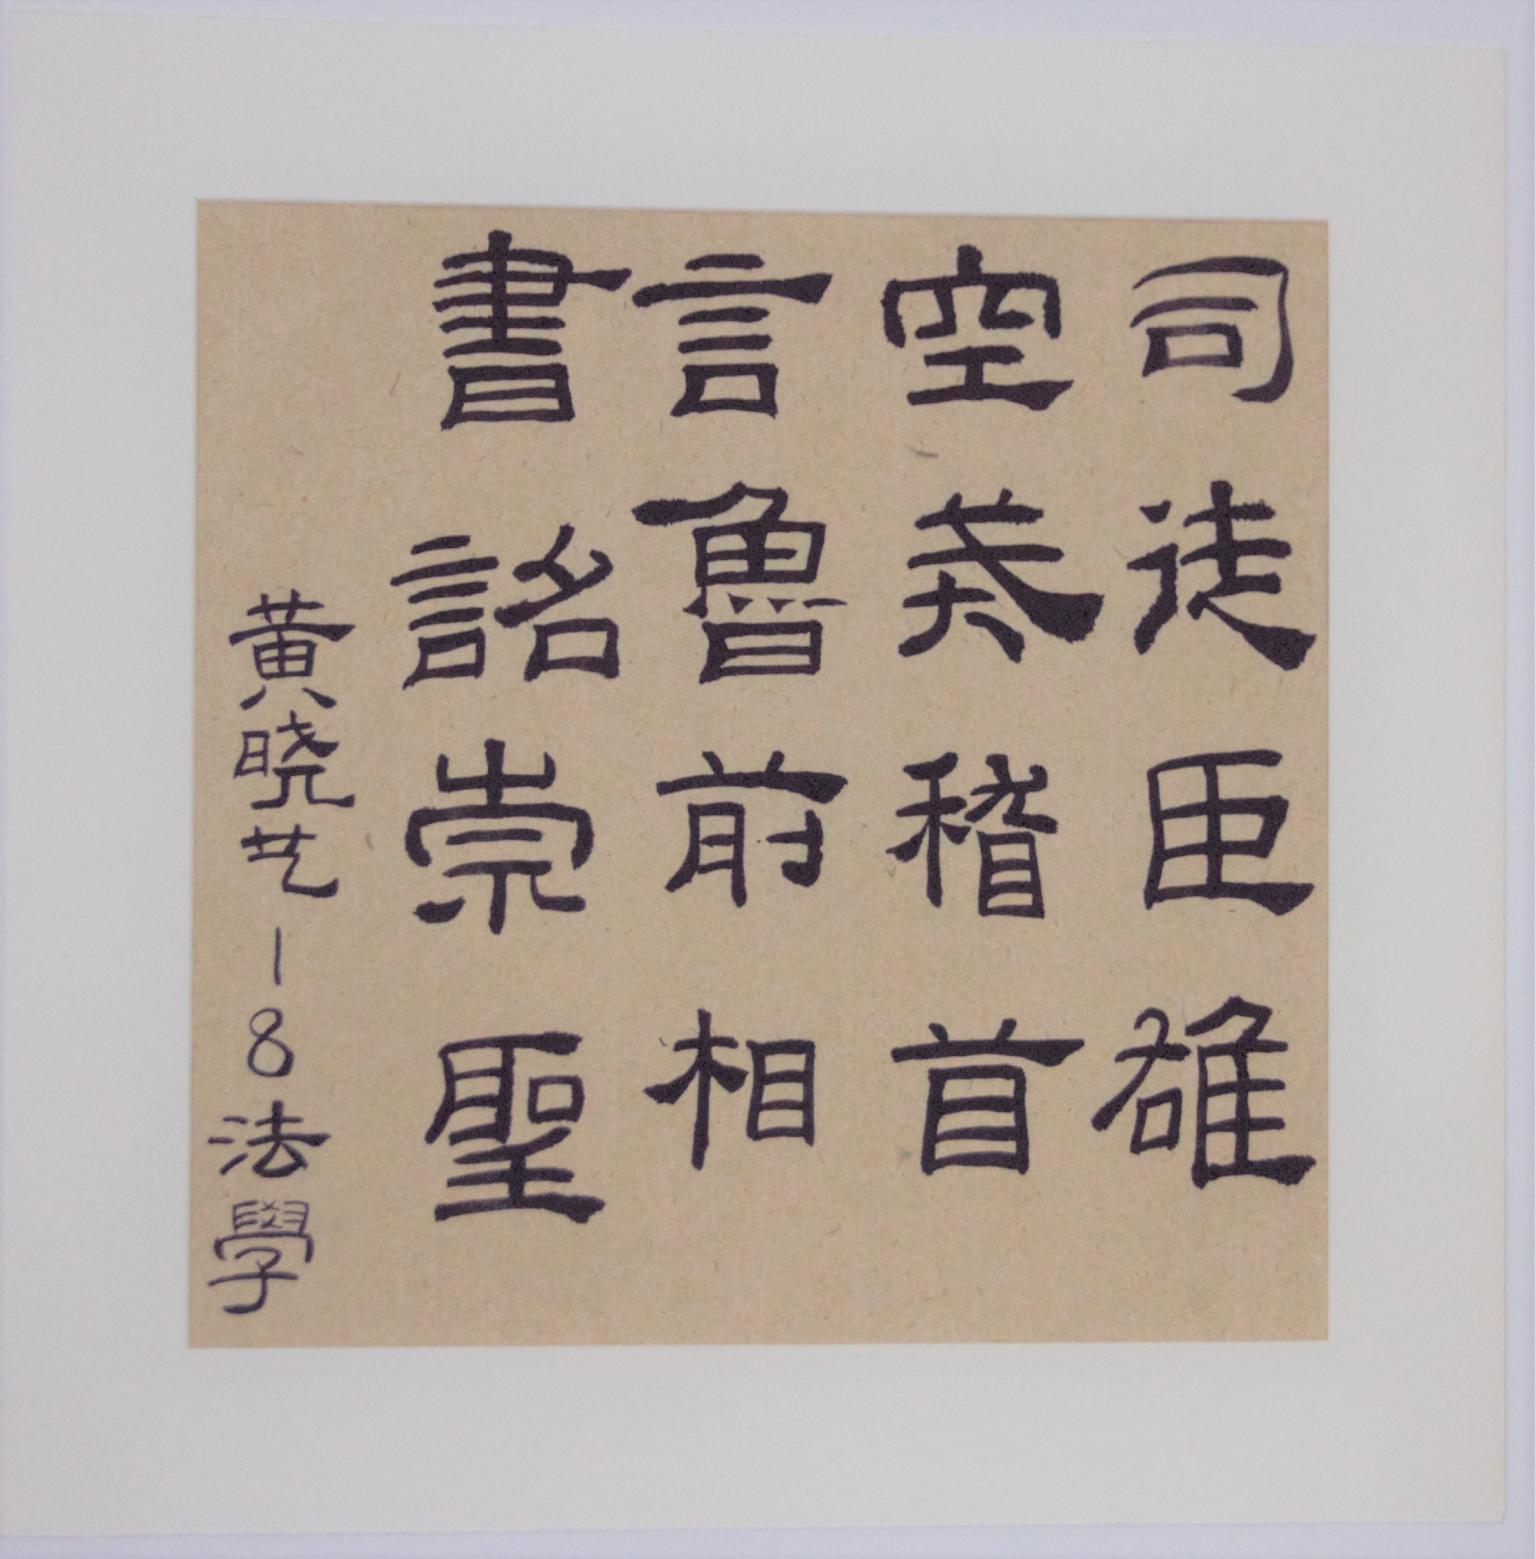 司徒臣雄
空戒稽首
言魯前相
書詔崇聖
黄晓艺18法學